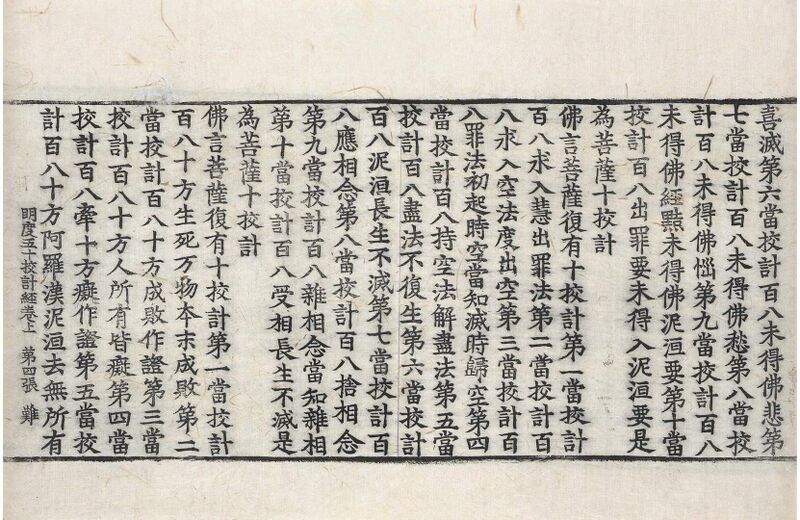 喜滅第六當校計百八未得佛悲第
七當校計百八未得佛愁第八當校
計百八未得佛惱第九當校計百八
未得佛經黠未得佛泥洹要第十當
校計百八出罪要未得入泥洹要是
為菩薩十校計
佛言菩薩復有十校計第一當校計
百八求入慧出罪法第二當校計百
八求入空法度出空第三當校計百
八罪法初起時空當知滅時歸空第四
當校計百八持空法解盡法第五當
校計百八盡法不復生第六當校計
百八泥洹長生不滅第七當校計百
八應相念第八當校計百八捨相念
第九當校計百八雜相念當知雜相
第十當校計百八受相長生不滅是
為菩薩十校計
佛言菩薩復有十校計第一當校計
百八十方生死万物本末成敗第二
當校計百八十方成敗作證第三當
校計百八十方人所有皆癡第四當
校計百八牽十方癡作證第五當校
計百八十方阿羅漢泥洹去無所有
明度五十校計經卷上 第四張 難